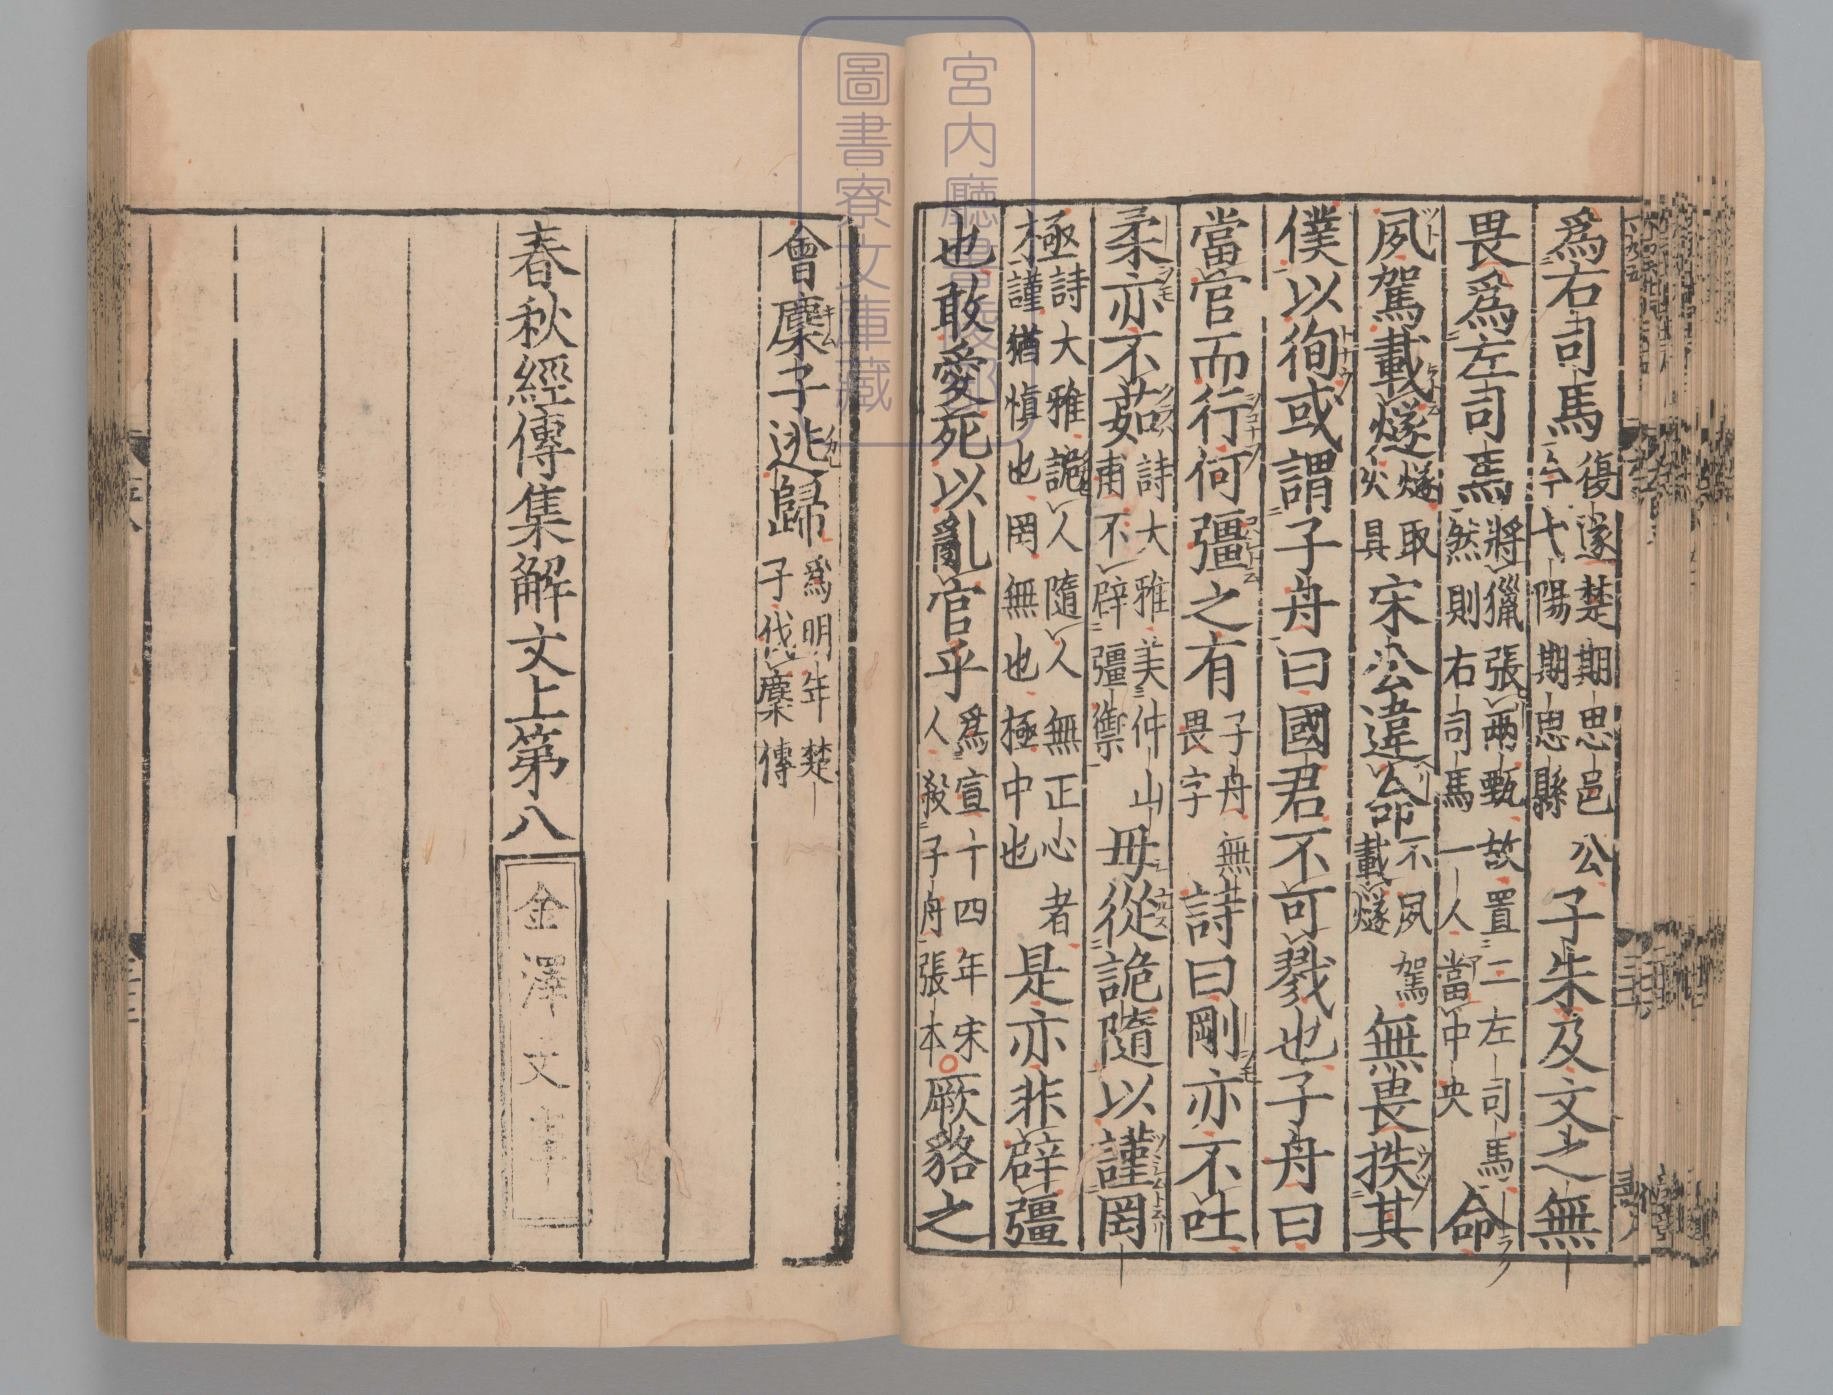 爲右司馬復遂楚期思邑公今弋陽期思縣子朱及文之無
畏爲左司馬將獵張兩甄故置二左司馬然則右司馬一人當中央命
夙駕載燧燧取火具宋公違命不夙駕載燧無畏抶其
僕以徇或謂子舟曰國君不可戮也子舟曰
當官而行何彊之有子舟無畏字詩曰剛亦不吐
柔亦不茹詩大雅美仲山甫不辟彊禦毋從詭隨以謹罔
極詩大雅詭人隨人無正心者謹猶慎也罔無也極中也是亦非辟彊
也敢愛死以亂官乎爲宣十四年宋人殺子舟張本厥貉之
會麇子逃歸爲明年楚子伐麇傳
春秋經傳集解文上第八
金澤文庫
宮内廳書陵部
圖書寮文庫藏